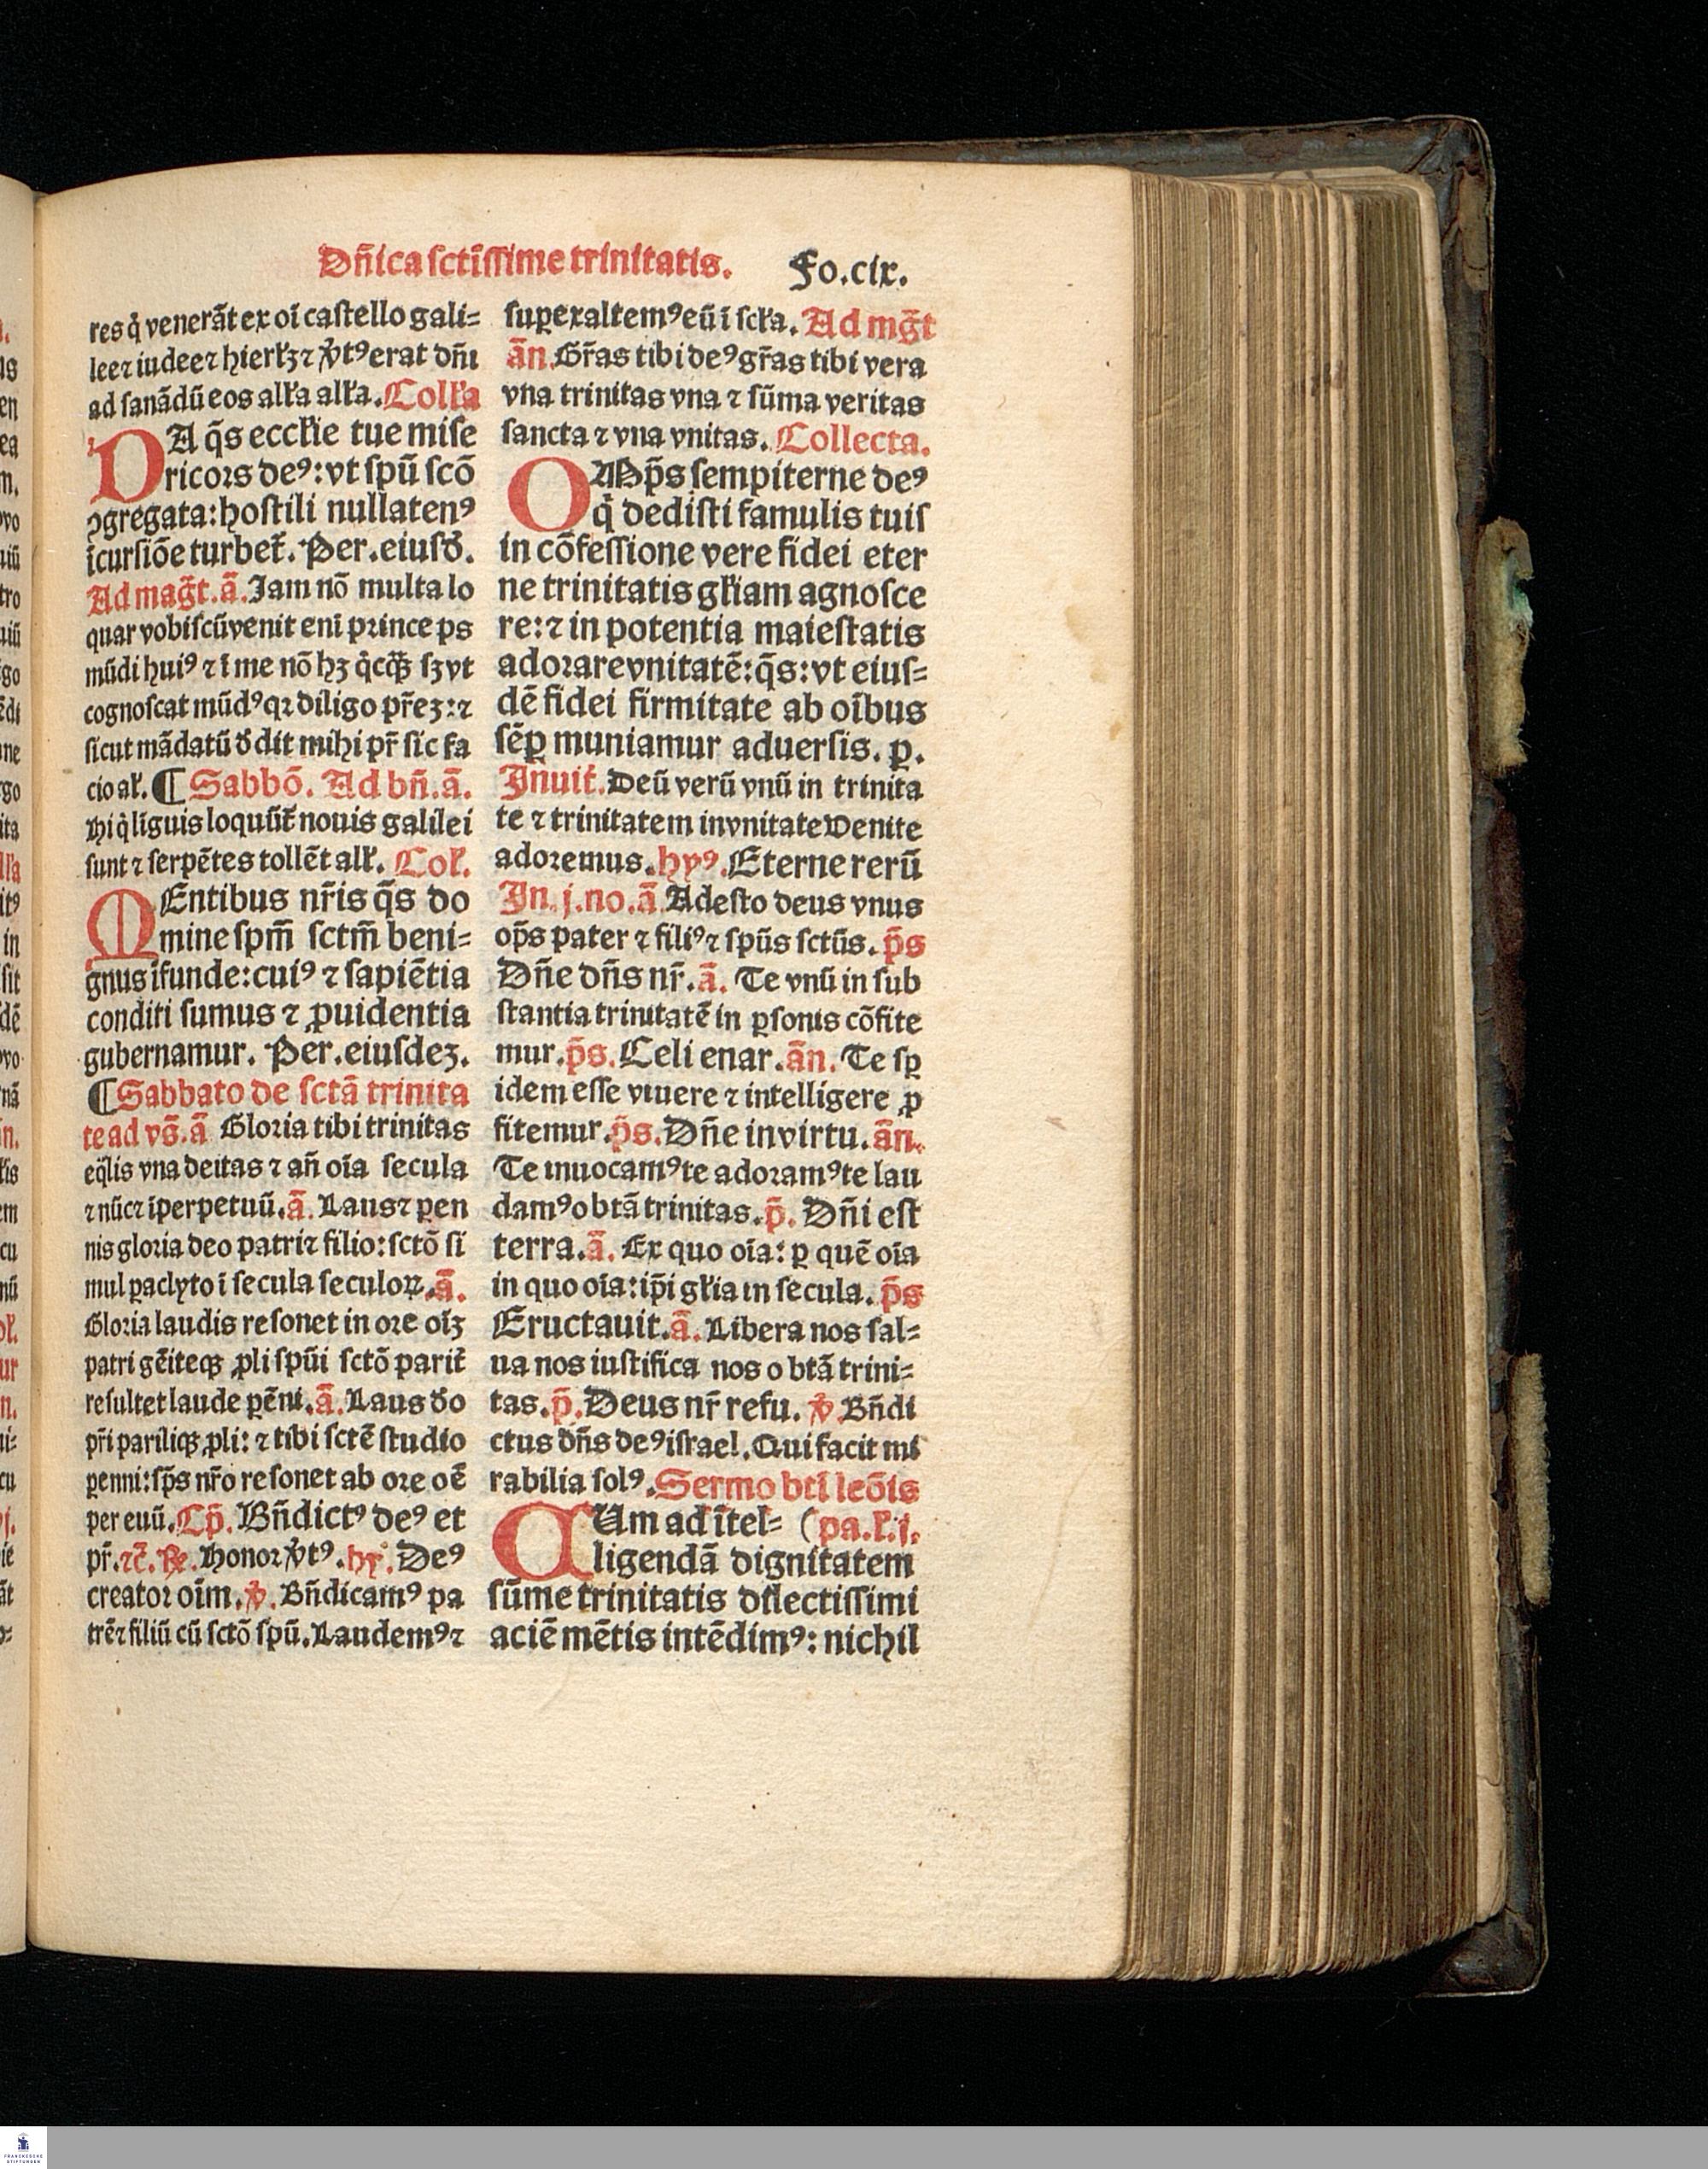 Dn̄ica sctīssime trinitatis. Fo.cix.
res q̇ venerāt ex oī castello gali⸗
lee ⁊ iudee ⁊ hierłꝫ ⁊ v̊tꝰ erat dn̄i
ad sanādū eos alła alła. Colła
DA q̄s eccłie tue mise
ricors deꝰ: vt spū scō
ꝯgregata: hostili nullatenꝰ
īcursiōe turbet᷑. Per. eiusđ.
Ad maḡt. ā. Jam nō multa lo
quar vobiscū venit enī prince ps
mūdi huiꝰ ⁊ ī me nō hꝫ q̇cq̄ꝫ sꝫ vt
cognoscat mūdꝰ qꝛ diligo pr̄eꝫ: ⁊
sicut mādatū đdit mihi pr̄ sic fa
cio ał. ¶ Sabbō. Ad bn̄. ā.
Hi q̇ līguis loquūt᷑ nouis galilei
sunt ⁊ serpētes tollēt ałł. Coł.
MEntibus nr̄is q̄s do
mine spm̄ sctm̄ beni⸗
gnus īfunde: cuiꝰ ⁊ sapiētia
conditi sumus ⁊ ꝓuidentia
gubernamur. Per. eiusdeꝫ.
¶ Sabbato de sctā trinita
te ad vs̄. ā Gloria tibi trinitas
eq̄lis vna deitas ⁊ an̄ oīa secula
⁊ nūc ⁊ īperpetuū. ā. Laus ⁊ ꝑen
nis gloria deo patri ⁊ filio: sctō si
mul paclyto ī secula seculoꝝ. ā.
Gloria laudis resonet in ore oīꝫ
patri gēiteqꝫ ꝓli spūi sctō parit᷑
resultet laude ꝑēni. ā. Laus đo
pr̄i pariliqꝫ ꝓli: ⁊ tibi sctē studio
ꝑenni: sp̄s nr̄o resonet ab ore oē
per euū. Cp̄. Bn̄dictꝰ deꝰ et
pr̄. ⁊c̄. ꝶ. Honor v̊tꝰ. hy̆. Deꝰ
creator oīm. ℣. Bn̄dicamꝰ pa
trē ⁊ filiū cū sctō spū. Laudemꝰ ⁊
superexaltemꝰ eū ī scła. Ad mḡt
ān. Gr̄as tibi deꝰ gr̄as tibi vera
vna trinitas vna ⁊ sūma veritas
sancta ⁊ vna vnitas. Collecta.
OMp̄s sempiterne deꝰ
q̇ dedisti famulis tuis
in cōfessione vere fidei eter
ne trinitatis głiam agnosce
re: ⁊ in potentia maiestatis
adorare vnitatē: q̄s: vt eius⸗
dē fidei firmitate ab oībus
sēꝑ muniamur aduersis. ꝑ.
Jnuit᷑. Deū verū vnū in trinita
te ⁊ trinitatem in vnitate Venite
adoremus. hyꝰ. Eterne rerū
Jn. j. no. ā Adesto deus vnus
op̄s pater ⁊ filiꝰ ⁊ spūs sctūs. p̄s
Dn̄e dn̄s nr̄. ā. Te vnū in sub
stantia trinitatē in ꝑsonis cōfite
mur. p̄s. Celi enar. ān. Te sꝑ
idem esse viuere ⁊ intelligere ꝓ
fitemur. p̄s. Dn̄e in virtu. ān.
Te inuocamꝰ te adoramꝰ te lau
damꝰ o btā trinitas. p̄. Dn̄i est
terra. ā. Ex quo oīa: ꝑ quē oīa
in quo oīa: ip̄i głia in secula. p̄s
Eructauit. ā. Libera nos sal⸗
ua nos iustifica nos o btā trini⸗
tas. p̄. Deus nr̄ refu. ℣. Bn̄di
ctus dn̄s deꝰ israel. Qui facit mi
rabilia solꝰ. Sermo btī leōis
CUm ad ītel⸗ (pa. ł. j.
ligendā dignitatem
sūme trinitatis dłlectissimi
aciē mētis intēdimꝰ: nichil
FRANCKESCHE
STIFTUNGEN